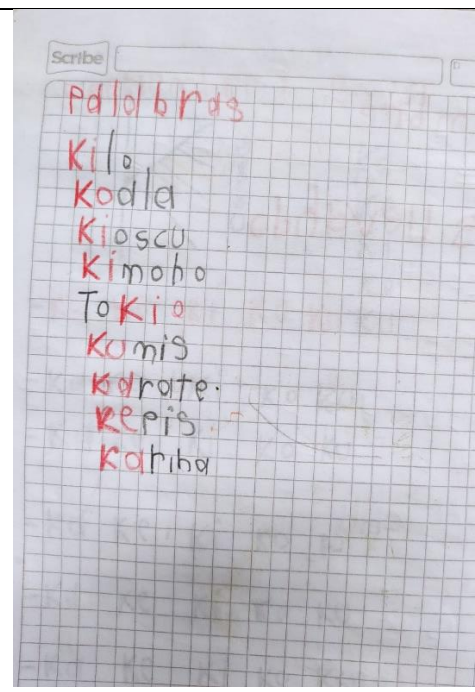 Scribe
Palabras
Kilo
Koala
Kioscu
Kimoho
ToKio
Kumis
Karate.
Kepis
Kariha